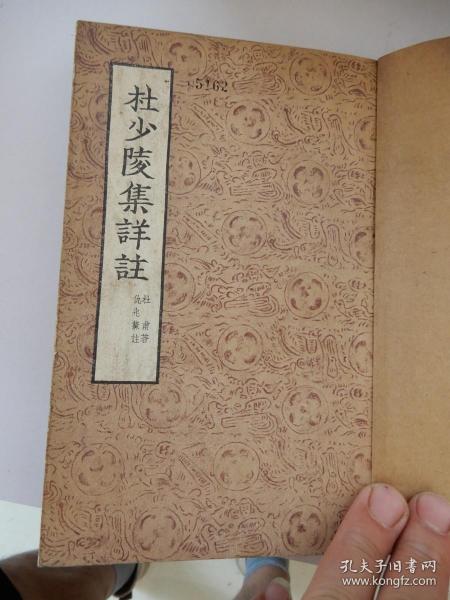 5162
杜少陵集詳註
杜甫著
仇兆鰲註
孔夫子旧书网
www.kongfz.com